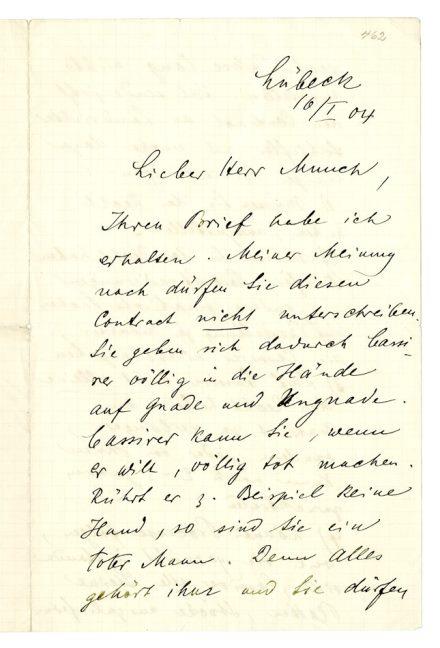 462
Lübeck
16/I 04
Lieber Herr Munch,
Ihren Brief habe ich
erhalten. Meiner Meinung
nach dürfen Sie diesen
Contract nicht unterschreiben.
Sie geben sich dadurch Cassi-
rer völlig in die Hände
auf Gnade und Ungnade.
Cassirer kann Sie, wenn
er will, völlig tot machen.
Rührt er z. Beispiel keine
Hand, so sind Sie ein
toter Mann. Denn alles
gehört ihm und Sie dürfen